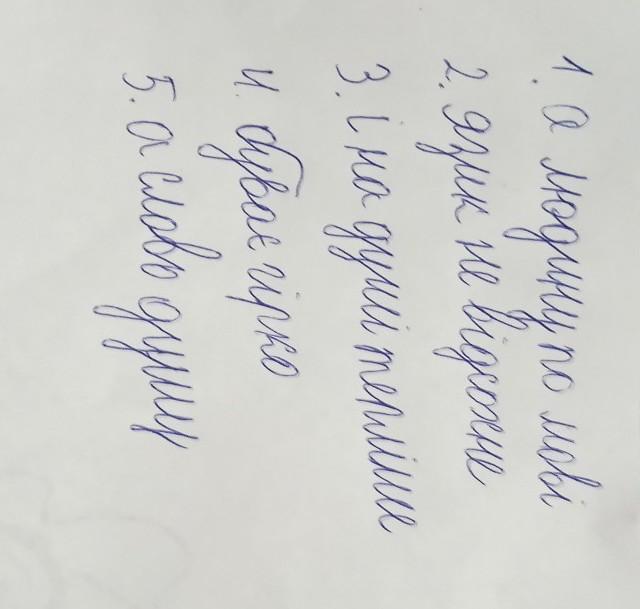 1. а людину по мові
2. язик не відсохне
3. і на душі тепліше
4. буває гірко
5. а слово душу